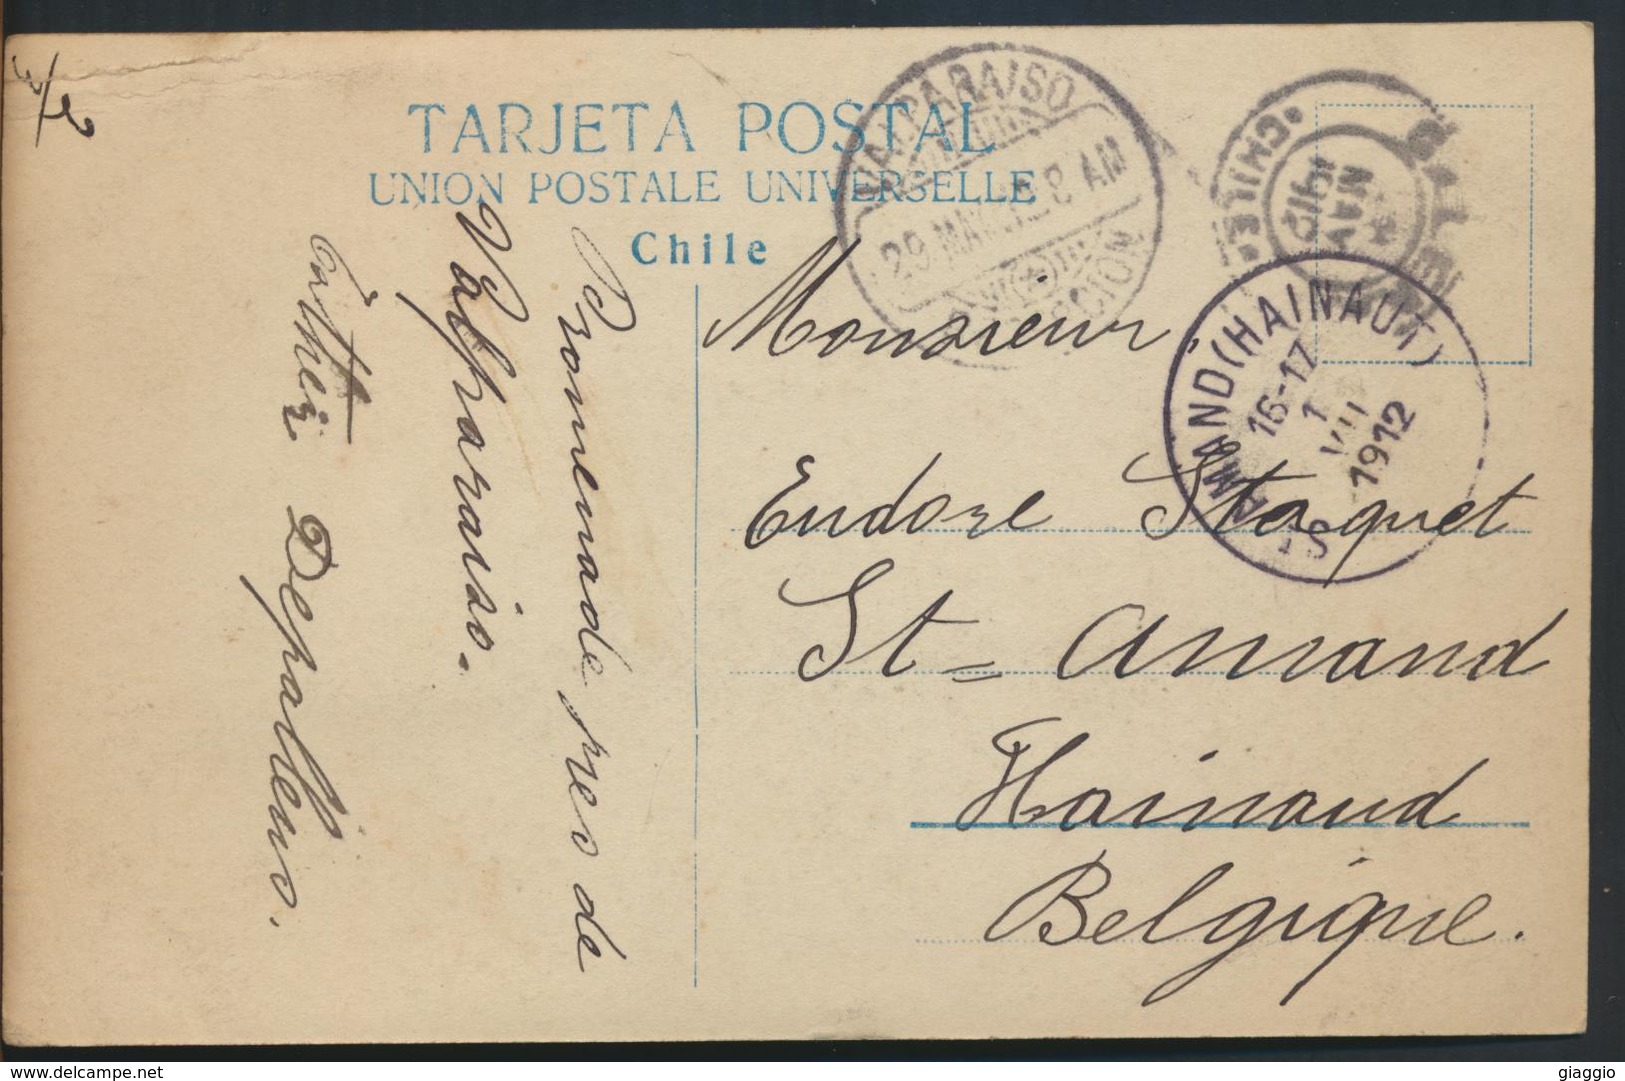 TARJETA POSTAL
UNION POSTALE UNIVERSELLE
Chile
VALPARAISO
29 MAY 12 8 AM
CHILE
MAY
1912
ST-AMAND (HAINAUT)
16-17
1
VII
1912
Promenade pres de
Valparaiso.
Depallens.
Monsieur
Eudore Staquet
St= Amand
Hainaud
Belgique.
giaggio